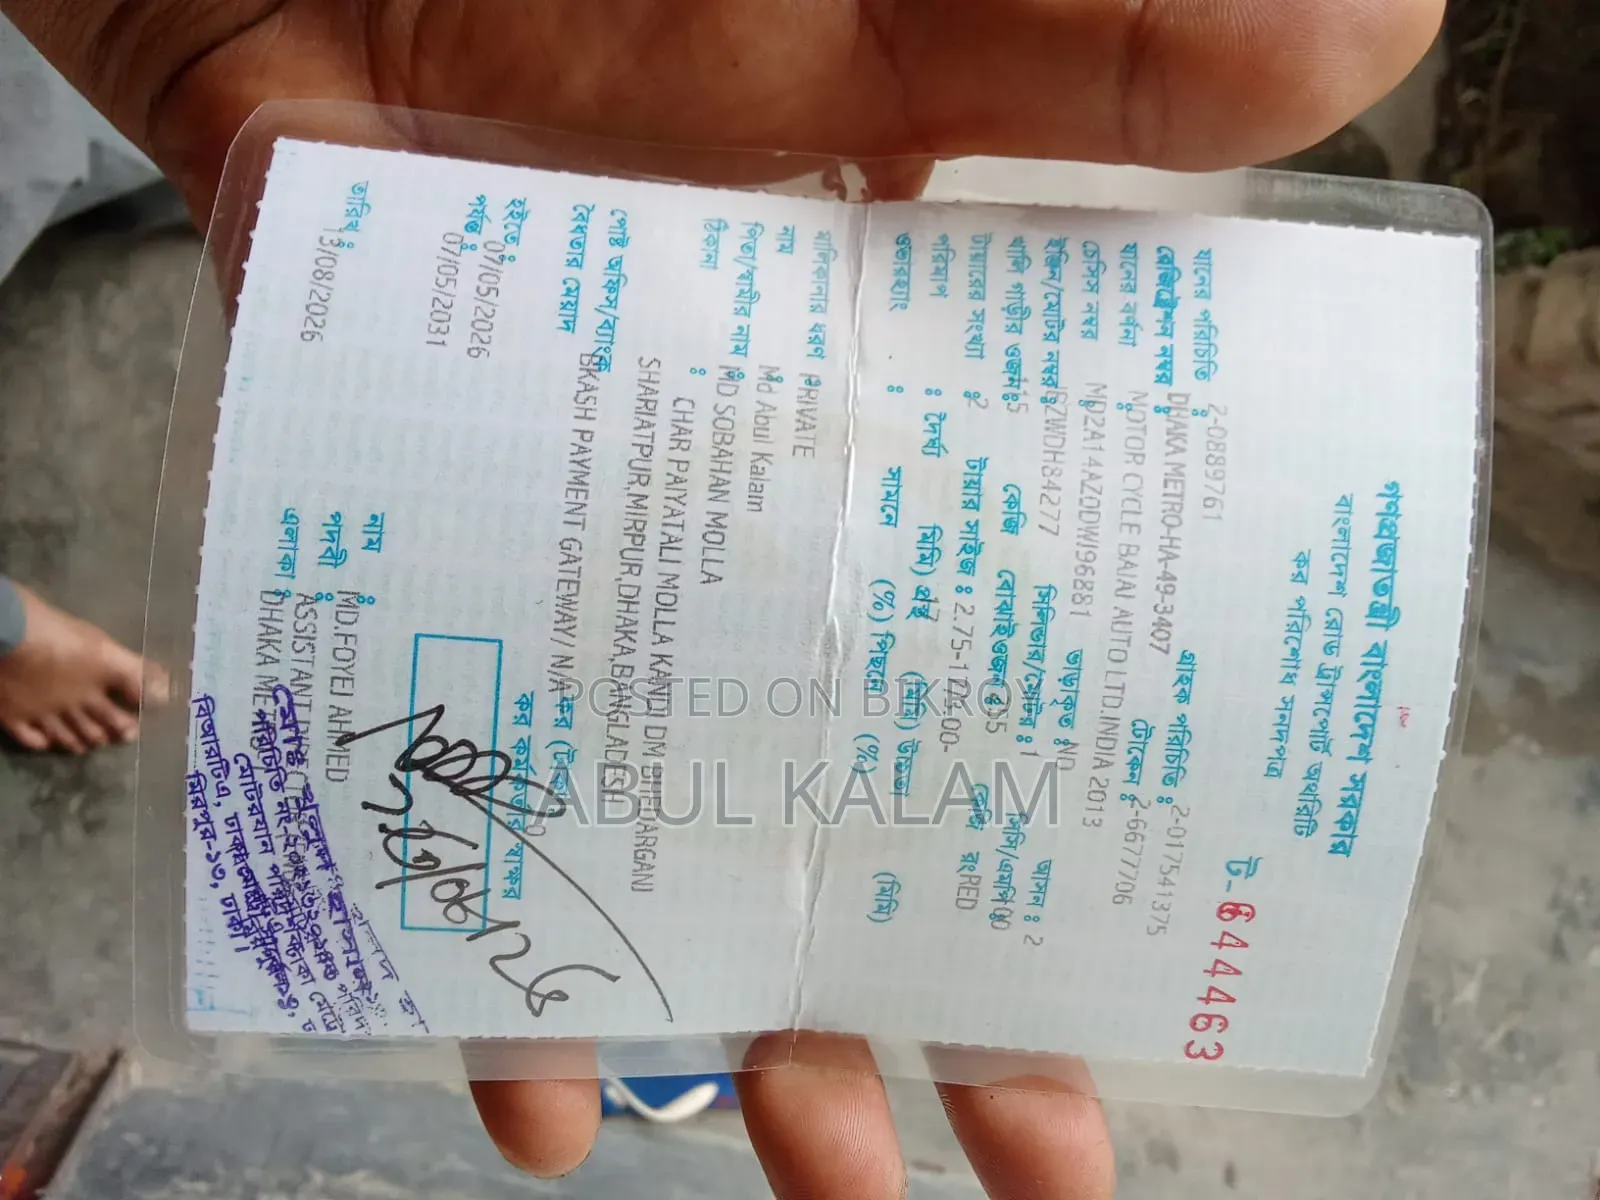 গণপ্রজাতন্ত্রী বাংলাদেশ সরকার
বাংলাদেশ রোড ট্রান্সপোর্ট অথরিটি
কর পরিশোধ সনদপত্র
ট- 6444463
যানের পরিচিতি : 2-0889761 গ্রাহক পরিচিতি : 2-017541375
রেজিস্ট্রেশন নম্বর : DHAKA METRO-HA-49-3407 টোকেন : 2-66777706
যানের বর্ণনা : MOTOR CYCLE BAJAJ AUTO LTD.INDIA 2013
চেসিস নম্বর : MD2A14AZDDWI96881 ভাড়াকৃত : NO আসন : 2
ইঞ্জিন/মোটর নম্বর : JZWDH84277 সিলিন্ডার/মোটর : 1 সিসি/এমপি
খালি গাড়ীর ওজন : কেজি বোঝাই ওজন : কেজি রং RED
টায়ারের সংখ্যা : 2 টায়ার সাইজ : 2.75-17
পরিমাপ : দৈর্ঘ্য মিমি) প্রস্থ (মিমি) উচ্চতা (মিমি)
ওভারহ্যাং : সামনে (%) পিছনে (%)
মালিকানার ধরণ PRIVATE
নাম : Md Abul Kalam
পিতা/স্বামীর নাম : MD SOBAHAN MOLLA
ঠিকানা : CHAR PAIYATALI MOLLA KANDI DM BHEDARGANJ
SHARIATPUR,MIRPUR,DHAKA,BANGLADESH
পোষ্ট অফিস/ব্যাংক : BKASH PAYMENT GATEWAY/ N/A কর (টাকা) : 0
বৈধতার মেয়াদ
হইতে : 07/05/2026 কর কর্মকর্তার স্বাক্ষর
পর্যন্ত : 07/05/2031
নাম : MD.FOYEJ AHMED
তারিখ : 13/08/2026 পদবী : ASSISTANT
এলাকা : DHAKA METRO
বিআরটিএ, ঢাকা
মিরপুর-১৩, ঢাকা।
POSTED ON BIKROY
ABUL KALAM